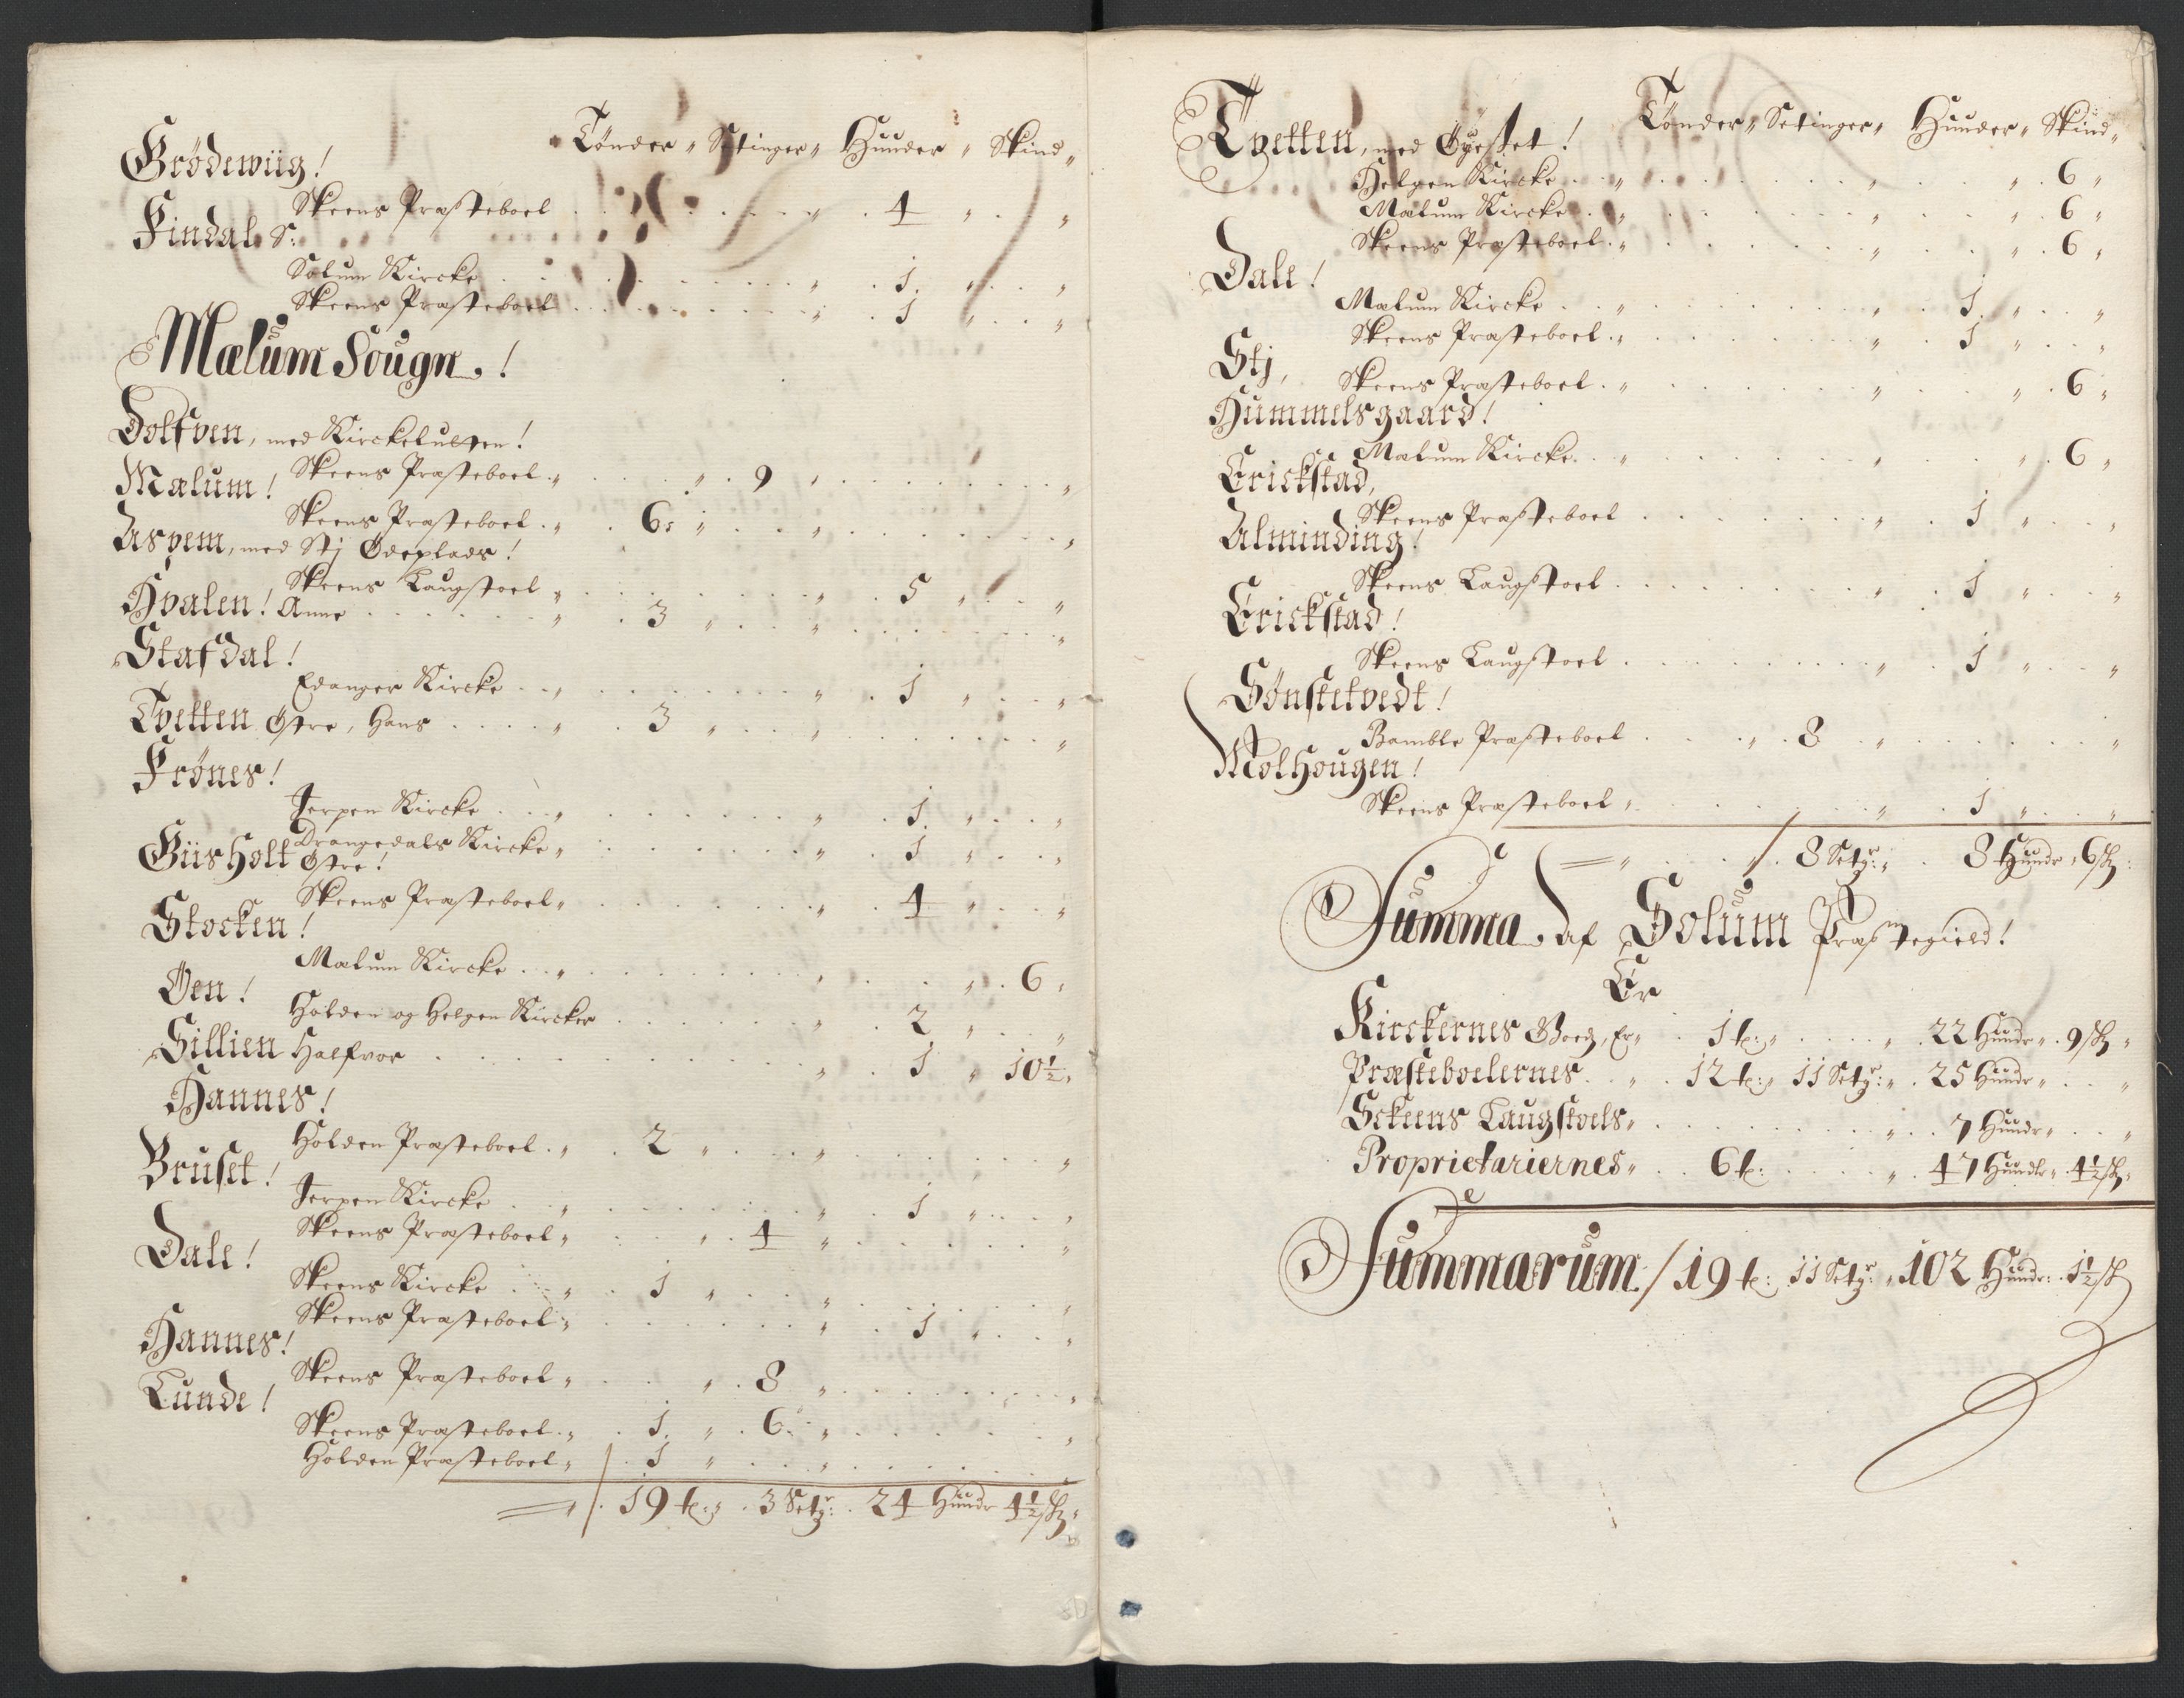 Tønder „ Setinger „ Hunder „ Skind „
Grødewiig!
Skeens Præsteboel . . . „ . 4 „ . „
Findal S:
Solum Kircke . . . „ . 1. „ . . „
Skeens Præsteboel . . . „ . 1 „ . . „
Mælum Sougn!
Dolfven, med Kirckelulten!
Skeens Præsteboel . „ . . „ . 9 „ . . . „
Mælum!
Skeens Præsteboel . „ . 6: „ . . „ . . . „
Aspem, med Stj Ødeplads!
Skeens Laugstoel „ . . . „ . 5 „ . . „
Hvalen! Anne . . . „ . 3 „ . . „ . . . „
Stafdal!
Edanger Kircke . . „ . . . „ . 1 „ . . „
Tvetten Østre, Hans . . . . „ . 3 „ . . „ . . . „
Frønes!
Jerpen Kircke . . . „ . . . „ . 1. „ . . „
Drangedals Kircke „ . . . „ . 1 „ . . „
Giisholt Østre!
Skeens Præsteboel „ . . . „ . 4 „ . . „
Stocken!
Mælum Kircke . . „ . . . „ . . „ . 6 „
Øen!
Holden og Helgen Kircker . . . „ . 2 „ . . „
Sillien Halfvor . . . „ . 1 „ 10½ „
Hannes!
Holden Præsteboel . „ . 2 „ . . „ . . . „
Bruset!
Jerpen Kircke . . „ . . . „ . 1 „ . . „
Skeens Præsteboel „ . . „ . 4 „ . . . „
Dale!
Skeens Kircke . . „ . 1 „ . . „ . . . „
Skeens Præsteboel „ . . . „ . 1 „ . . „
Hannes!
Skeens Præsteboel „ . . „ . 8 „ . . . „
Lunde!
Skeens Præsteboel . „ . 1. „ . 6. „ . . . „
Holden Præsteboel „ . 1 „ . . „ . . . „
/ . 19 t: „ . 3 Setgr: . 24 Hundr 4½ sk „
Tønder „ Setinger „ Hunder „ Skind „
Tvetten, med Øyestet!
Helgen Kircke . . „ . . . „ . . „ . 6 „
Mælum Kircke . . „ . . . „ . . „ . 6 „
Skeens Præsteboel . „ . . . „ . . „ . 6 „
Dale!
Mælum Kircke . . „ . . . „ . 1. „ . . „
Skeens Præsteboel . „ . . . „ . 1 „ . . „
Stj,
Skeens Præsteboel . „ . . . „ . . „ . 6 „
Hummelsgaard!
Mælum Kircke . . „ . . . „ . . „ . 6 „
Erickstad,
Skeens Præsteboel . . . „ . 1 „ . . „
Alminding!
Skeens Laugstoel . . . „ . 1 „ . . „
Erickstad!
Skeens Laugstoel . . . „ . 1 „ . . „
Sønstetvedt!
Bamble Præsteboel . . „ . 8 . „ . . . „
Molhougen!
Skeens Præsteboel „ . . . „ . 1 „ . . „
„ . . „ . 8 Setgr: „ . 8 Hundr „ 6 sk:
Summa af Solum Præstegield!
Er
Kirckernes Goedz, Er „ . 1 t: „ . . „ . 22 Hundr „ . 9 sk „
Præsteboelernes . . „ . 12 t: „ 11 Setgr: „ . 25 Hundr „ . . „
Sckeens Laugstoels „ . . . „ . 7 Hundr „ . . „
Proprietariernes „ . . 6 t: . . „ . 47 Hundr „ . 4½ sk „
Summarum / 19 t: 11 Setgr: „ 102 Hundr: . 1½ sk